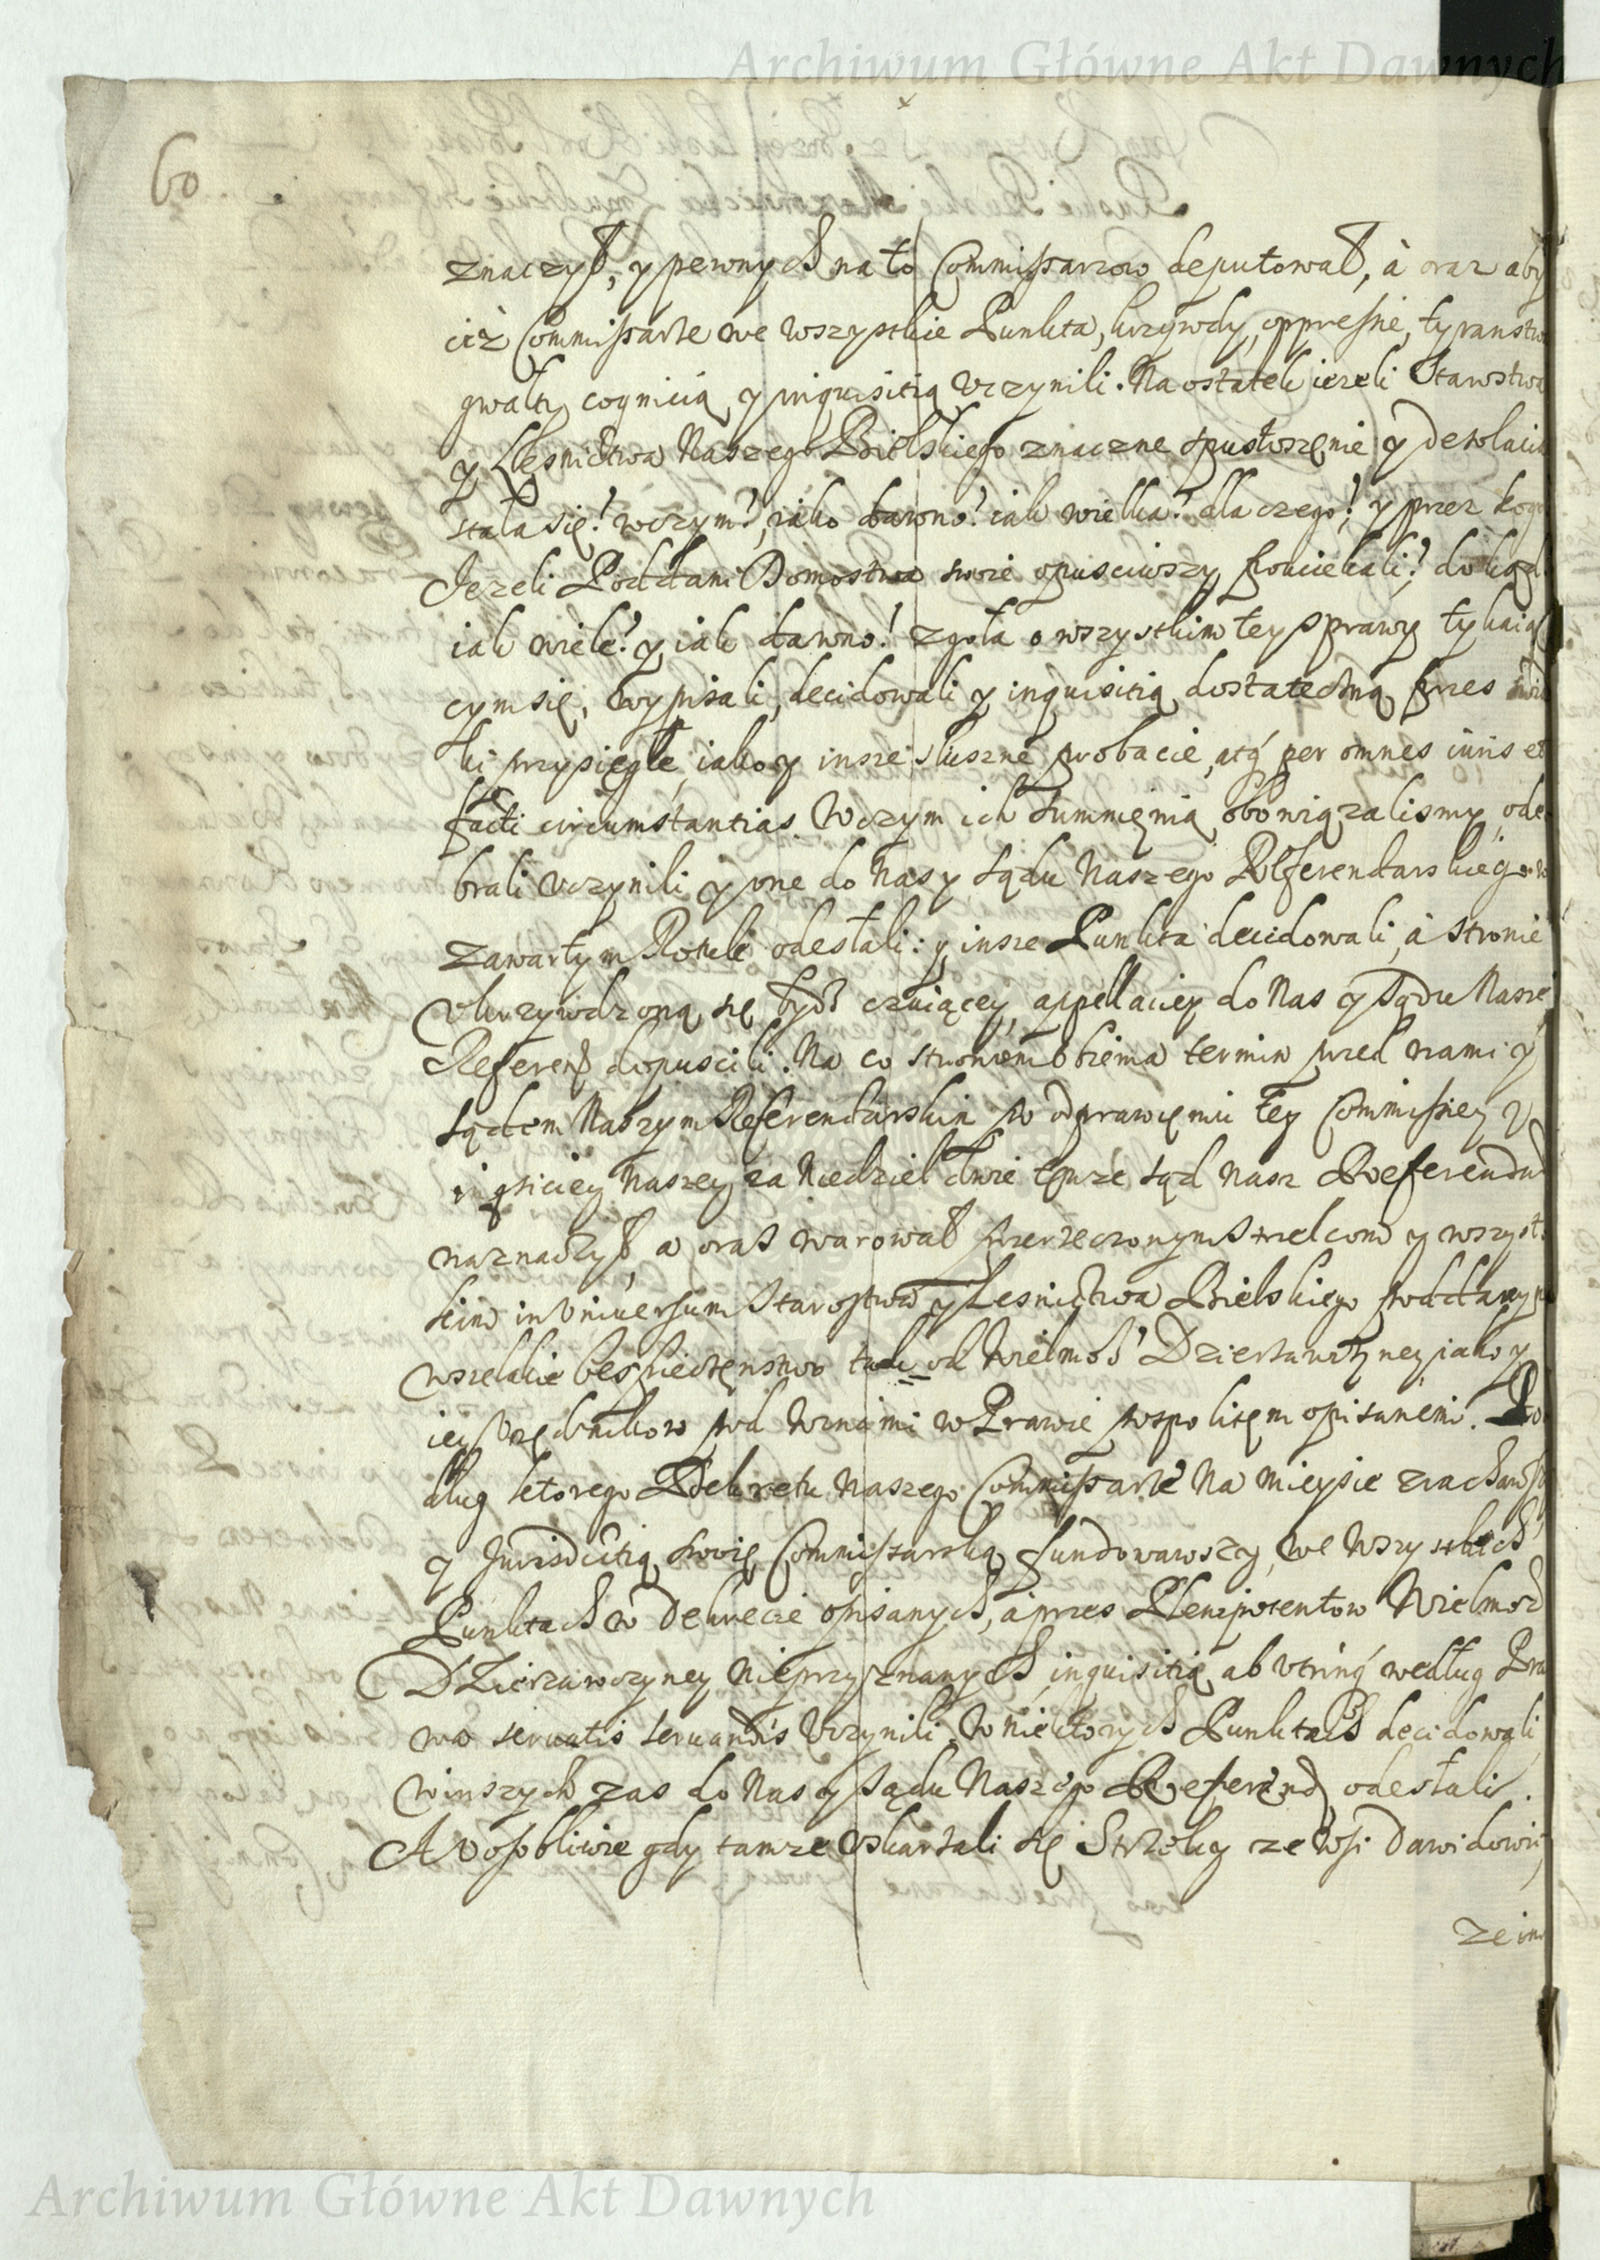 Archiwum Główne Akt Dawnych
60
znaczył, y pewnych na to Commissarzow deputował, à oraz aby
ciż Commissarze we wszystkie Punkta, krzywdy, oppressie, tyranstwa
gwałty cognicią y inquisitią vczynili. Na ostatek ieżeli Starostwa
y Leśnictwa Naszego Bielskiego znaczne spustoszenie y desolacia
stała się? w czym? iako dawno? iak wielka? dla czego? y przez kogo
Ieżeli Poddani Domostwa swoie opusciwszy pouciekali? dokąd
iak wiele? y iak dawno? zgoła o wszystkim tey sprawy tykaią
cym się, wypisali, decidowali y inquisitią dostateczną przes świa
tki przysięgłe, iako y insze słuszne probacie, atq́ per omnes iuris et
facti circumstantias. W czym ich summienia obowiązalismy, ode
brali vczynili y one do Nas y sądu Naszego Referendarskiego w
zawartym Rotule odesłali: y insze Punkta decidowali, à stronie
vkrzywdzoną się bydź czuiącey, appellaciey do Nas y sądu Nasze
Referen dopuscili. Na co stronom obiema termin przed nami y
sądem Naszym Referendarskim po odprawieniu tey Commissiey y
inqsiciey Naszey za Niedziel dwie tenże sąd nasz Referendar
naznaczył, a oraz warował przerzeczonym strzelcom y wszyst
kim in Vniversum Starostwa y Lesnictwa Bielskiego poddanym
wszelakie bespieczenstwo tak od Wielmoż Dzierżawczyney iako y
iey Vrzędnikow pod winami w Prawie pospolitem opisanemi. Po
dług ktorego Dekretu Naszego Commissarze Na mieysce ziachawszy
y Jurisdictią swoię Commissarską fundowawszy, we wszystkich
Punktach w dekrecie opisanych, a przes Plenipotentow Wielmoż
Dzierzawczyney nieprzyznanych inquisitią ab vtrinq́ według Pra
wa servatis servandis vczynili, w niektorych Punktach decidowali
w inszych zas do Nas y sądu Naszego Referend odesłali.
A osobliwie gdy tamze vskarzali się Strzelcy ze wsi Dawidowic
ze in
Archiwum Główne Akt Dawnych